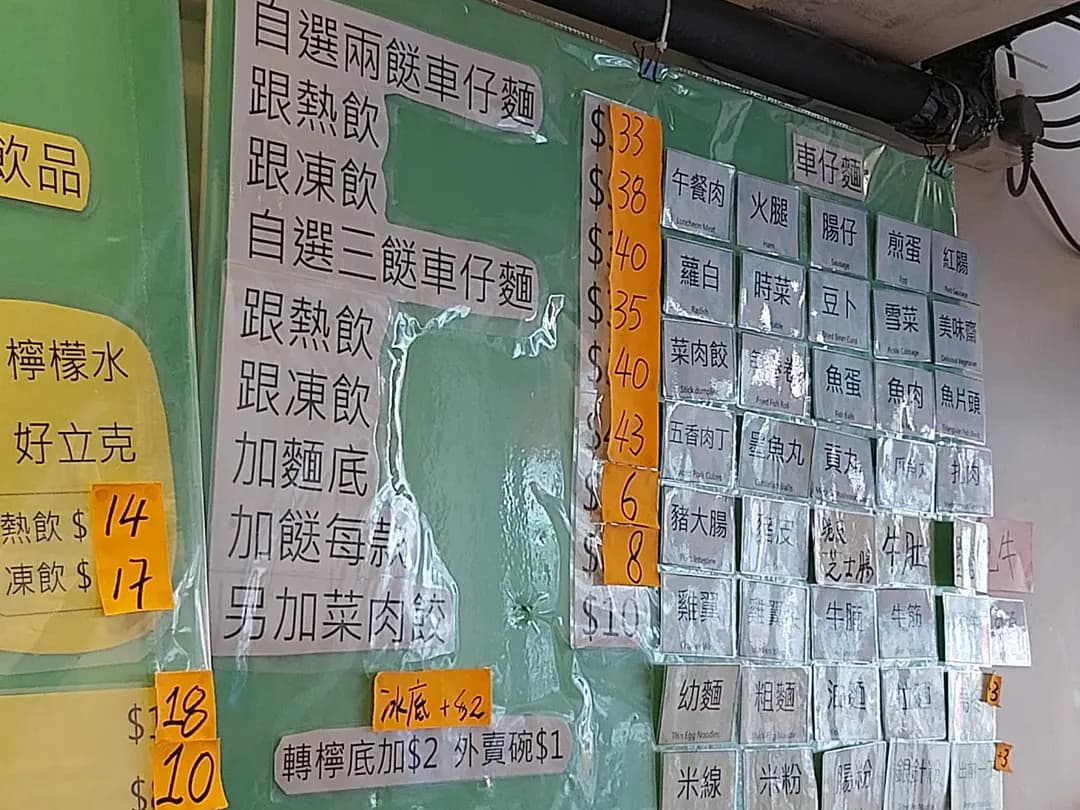 飲品
檸檬水
好立克
熱飲 $14
凍飲 $17
18
10
自選兩餸車仔麵 $33
跟熱飲 $38
跟凍飲 $40
自選三餸車仔麵 $35
跟熱飲 $40
跟凍飲 $43
加麵底 $6
加餸每款 $8
另加菜肉餃 $10
冰底 +$2
轉檸底加$2 外賣碗$1
車仔麵
午餐肉 火腿 腸仔 煎蛋 紅腸
Luncheon Meat Ham Sausage Egg Red Sausage
蘿白 時菜 豆卜 雪菜 美味齋
Radish
菜肉餃 魚蛋 魚肉 魚片頭
Fried Fish Roll Fish Balls
五香肉丁 墨魚丸 貢丸
豬大腸 豬皮 芝士腸 牛肚 牛
雞翼 牛腩 牛筋
幼麵 粗麵 油麵
Thin Egg Noodles
+3
米線 米粉 腸粉 銀針粉 出前一丁
+3